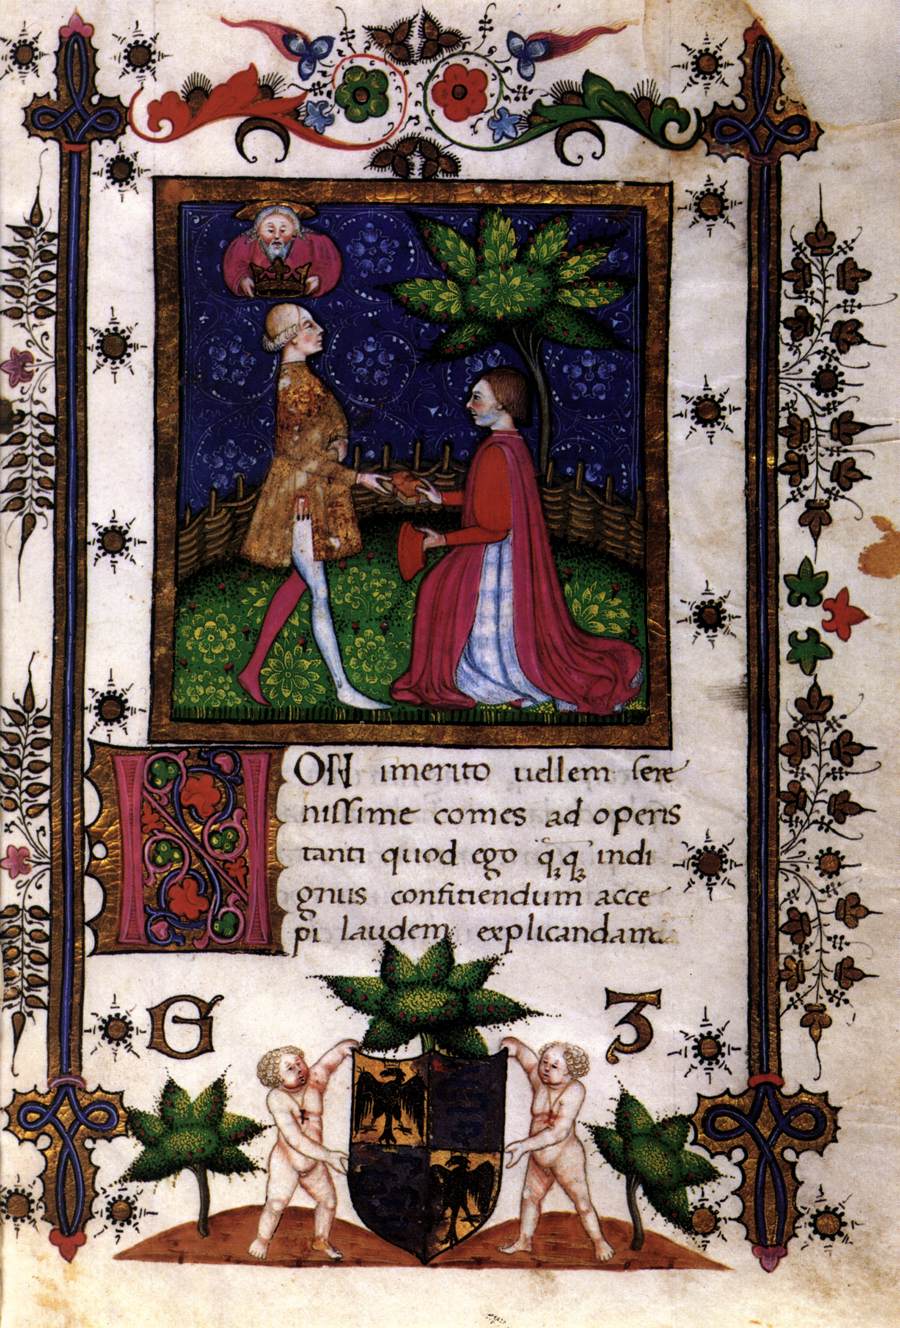 NON imerito uellem sere
nissime comes ad operis
tanti quod ego qꝫqꝫ indi
gnus confitiendum acce
pi laudem explicandam
G Z